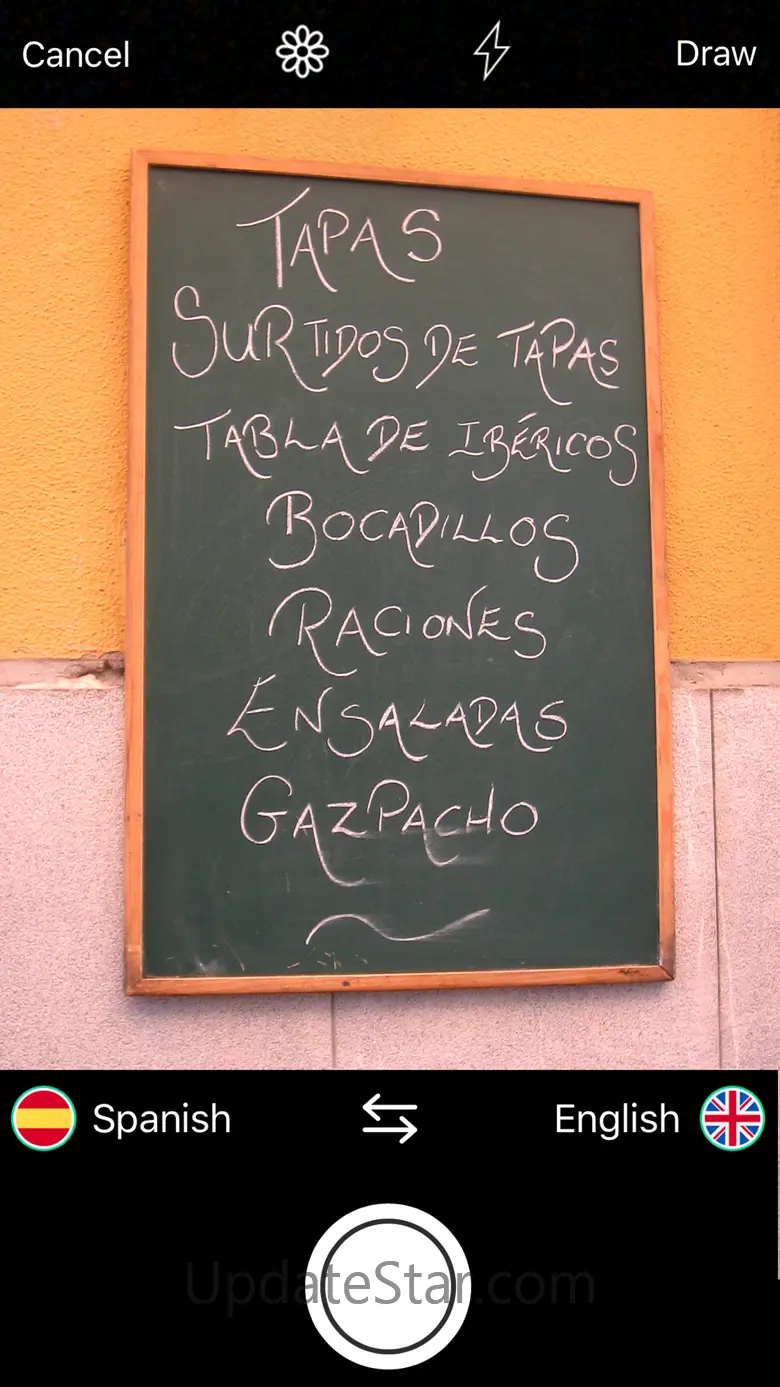 Cancel Draw
TAPAS
SURTIDOS DE TAPAS
TABLA DE IBÉRICOS
BOCADILLOS
RACIONES
ENSALADAS
GAZPACHO
Spanish English
UpdateStar.com